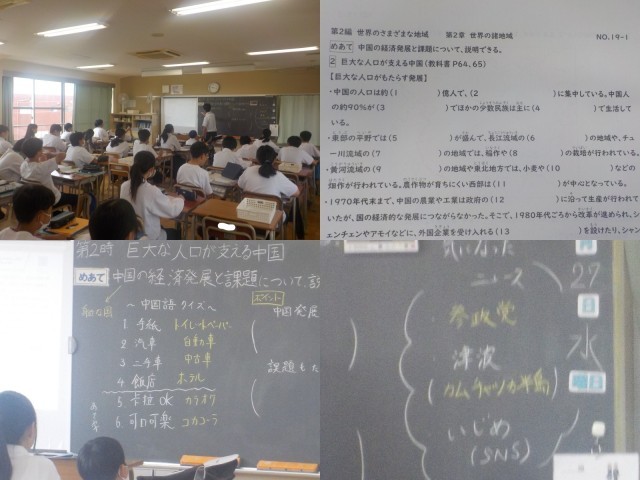 第2編 世界のさまざまな地域 第2章 世界の諸地域
NO.19-1
めあて 中国の経済発展と課題について、説明できる。
2 巨大な人口が支える中国(教科書 P64、65)
【巨大な人口がもたらす発展】
・中国の人口は約(1 )億人で、(2 )に集中している。中国人
の約90%が(3 )でほかの少数民族は主に(4 )で生活して
いる。
・東部の平野では(5 )が盛んで、長江流域の(6 )の地域や、チュ
ー川流域の(7 )の地域では、稲作や(8 )の栽培が行われている。
・黄河流域の(9 )の地域や東北地方では、小麦や(10 )などの
畑作が行われている。農作物が育ちにくい西部は(11 )が中心となっている。
・1970年代末まで、中国の農業や工業は政府の(12 )に沿って生産が行われて
いたが、国の経済的な発展につながらなかった。そこで、1980年代ごろから改革が進められ、シ
ェンチェンやアモイなどに、外国企業を受け入れる(13 )を設けたり、シャン
第2時 巨大な人口が支える中国
めあて 中国の経済発展と課題について、説
〜中国語クイズ〜
1. 手紙 トイレットペーパー
2. 汽車 自動車
3. 二手車 中古車
4. 飯店 ホテル
5. 卡拉OK カラオケ
6. 可口可楽 コカコーラ
ポイント
中国 発展
課題もた
気になった
ニュース
参政党
津波
(カムチャツカ半島)
いじめ
(SNS)
27
日
水
曜日